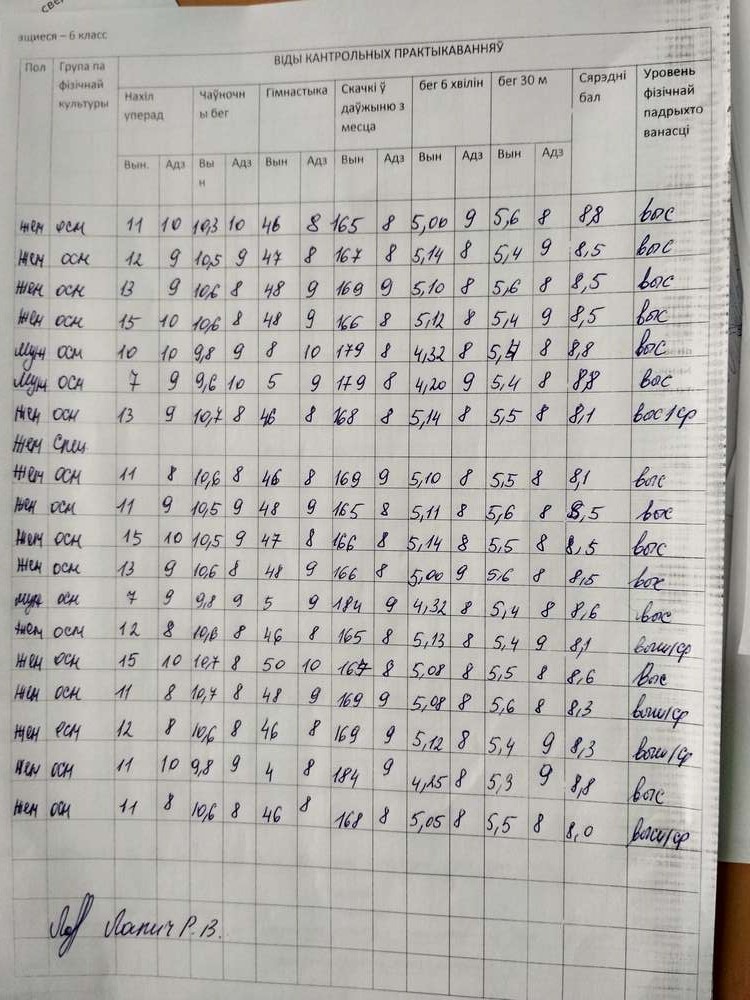 све
эщиеся – 6 класс
ВІДЫ КАНТРОЛЬНЫХ ПРАКТЫКАВАННЯЎ
Пол Група па фізічнай культуры Нахіл уперад Чаўночны бег Гімнастыка Скачкі ў даўжыню з месца бег 6 хвілін бег 30 м Сярэдні бал Уровень фізічнай падрыхтованасці
Вын. Адз Вын Адз Вын Адз Вын Адз Вын Адз Вын Адз
жен осн 11 10 10,3 10 46 8 165 8 5,00 9 5,6 8 8,8 выс
жен осн 12 9 10,5 9 47 8 167 8 5,14 8 5,4 9 8,5 выс
жен осн 13 9 10,6 8 48 9 169 9 5,10 8 5,6 8 8,5 выс
жен осн 15 10 10,6 8 48 9 166 8 5,12 8 5,4 9 8,5 выс
муж осн 10 10 9,8 9 8 10 179 8 4,32 8 8 8,8 выс
муж осн 7 9 9,6 10 5 9 179 8 4,20 9 5,4 8 8,8 выс
жен осн 13 9 10,7 8 46 8 168 8 5,14 8 5,5 8 8,1 выс/ср
жен спец
жен осн 11 8 10,6 8 46 8 169 9 5,10 8 5,5 8 8,1 выс
жен осн 11 9 10,5 9 48 9 165 8 5,11 8 5,6 8 8,5 выс
жен осн 15 10 10,5 9 47 8 166 8 5,14 8 5,5 8 8,5 выс
жен осн 13 9 10,6 8 48 9 166 8 5,00 9 5,6 8 8,5 выс
муж осн 7 9 9,8 9 5 9 184 9 4,32 8 5,4 8 8,6 выс
жен осн 12 8 10,6 8 46 8 165 8 5,13 8 5,4 9 8,1 выш/ср
жен осн 15 10 10,7 8 50 10 167 8 5,08 8 5,5 8 8,6 выс
жен осн 11 8 10,7 8 48 9 169 9 5,08 8 5,6 8 8,3 выш/ср
жен осн 12 8 10,6 8 46 8 169 9 5,12 8 5,4 9 8,3 выш/ср
жен осн 11 10 9,8 9 4 8 184 9 4,25 8 5,3 9 8,8 выс
жен осн 11 8 10,6 8 46 8 168 8 5,05 8 5,5 8 8,0 высш/ср
Лапич Р.В.